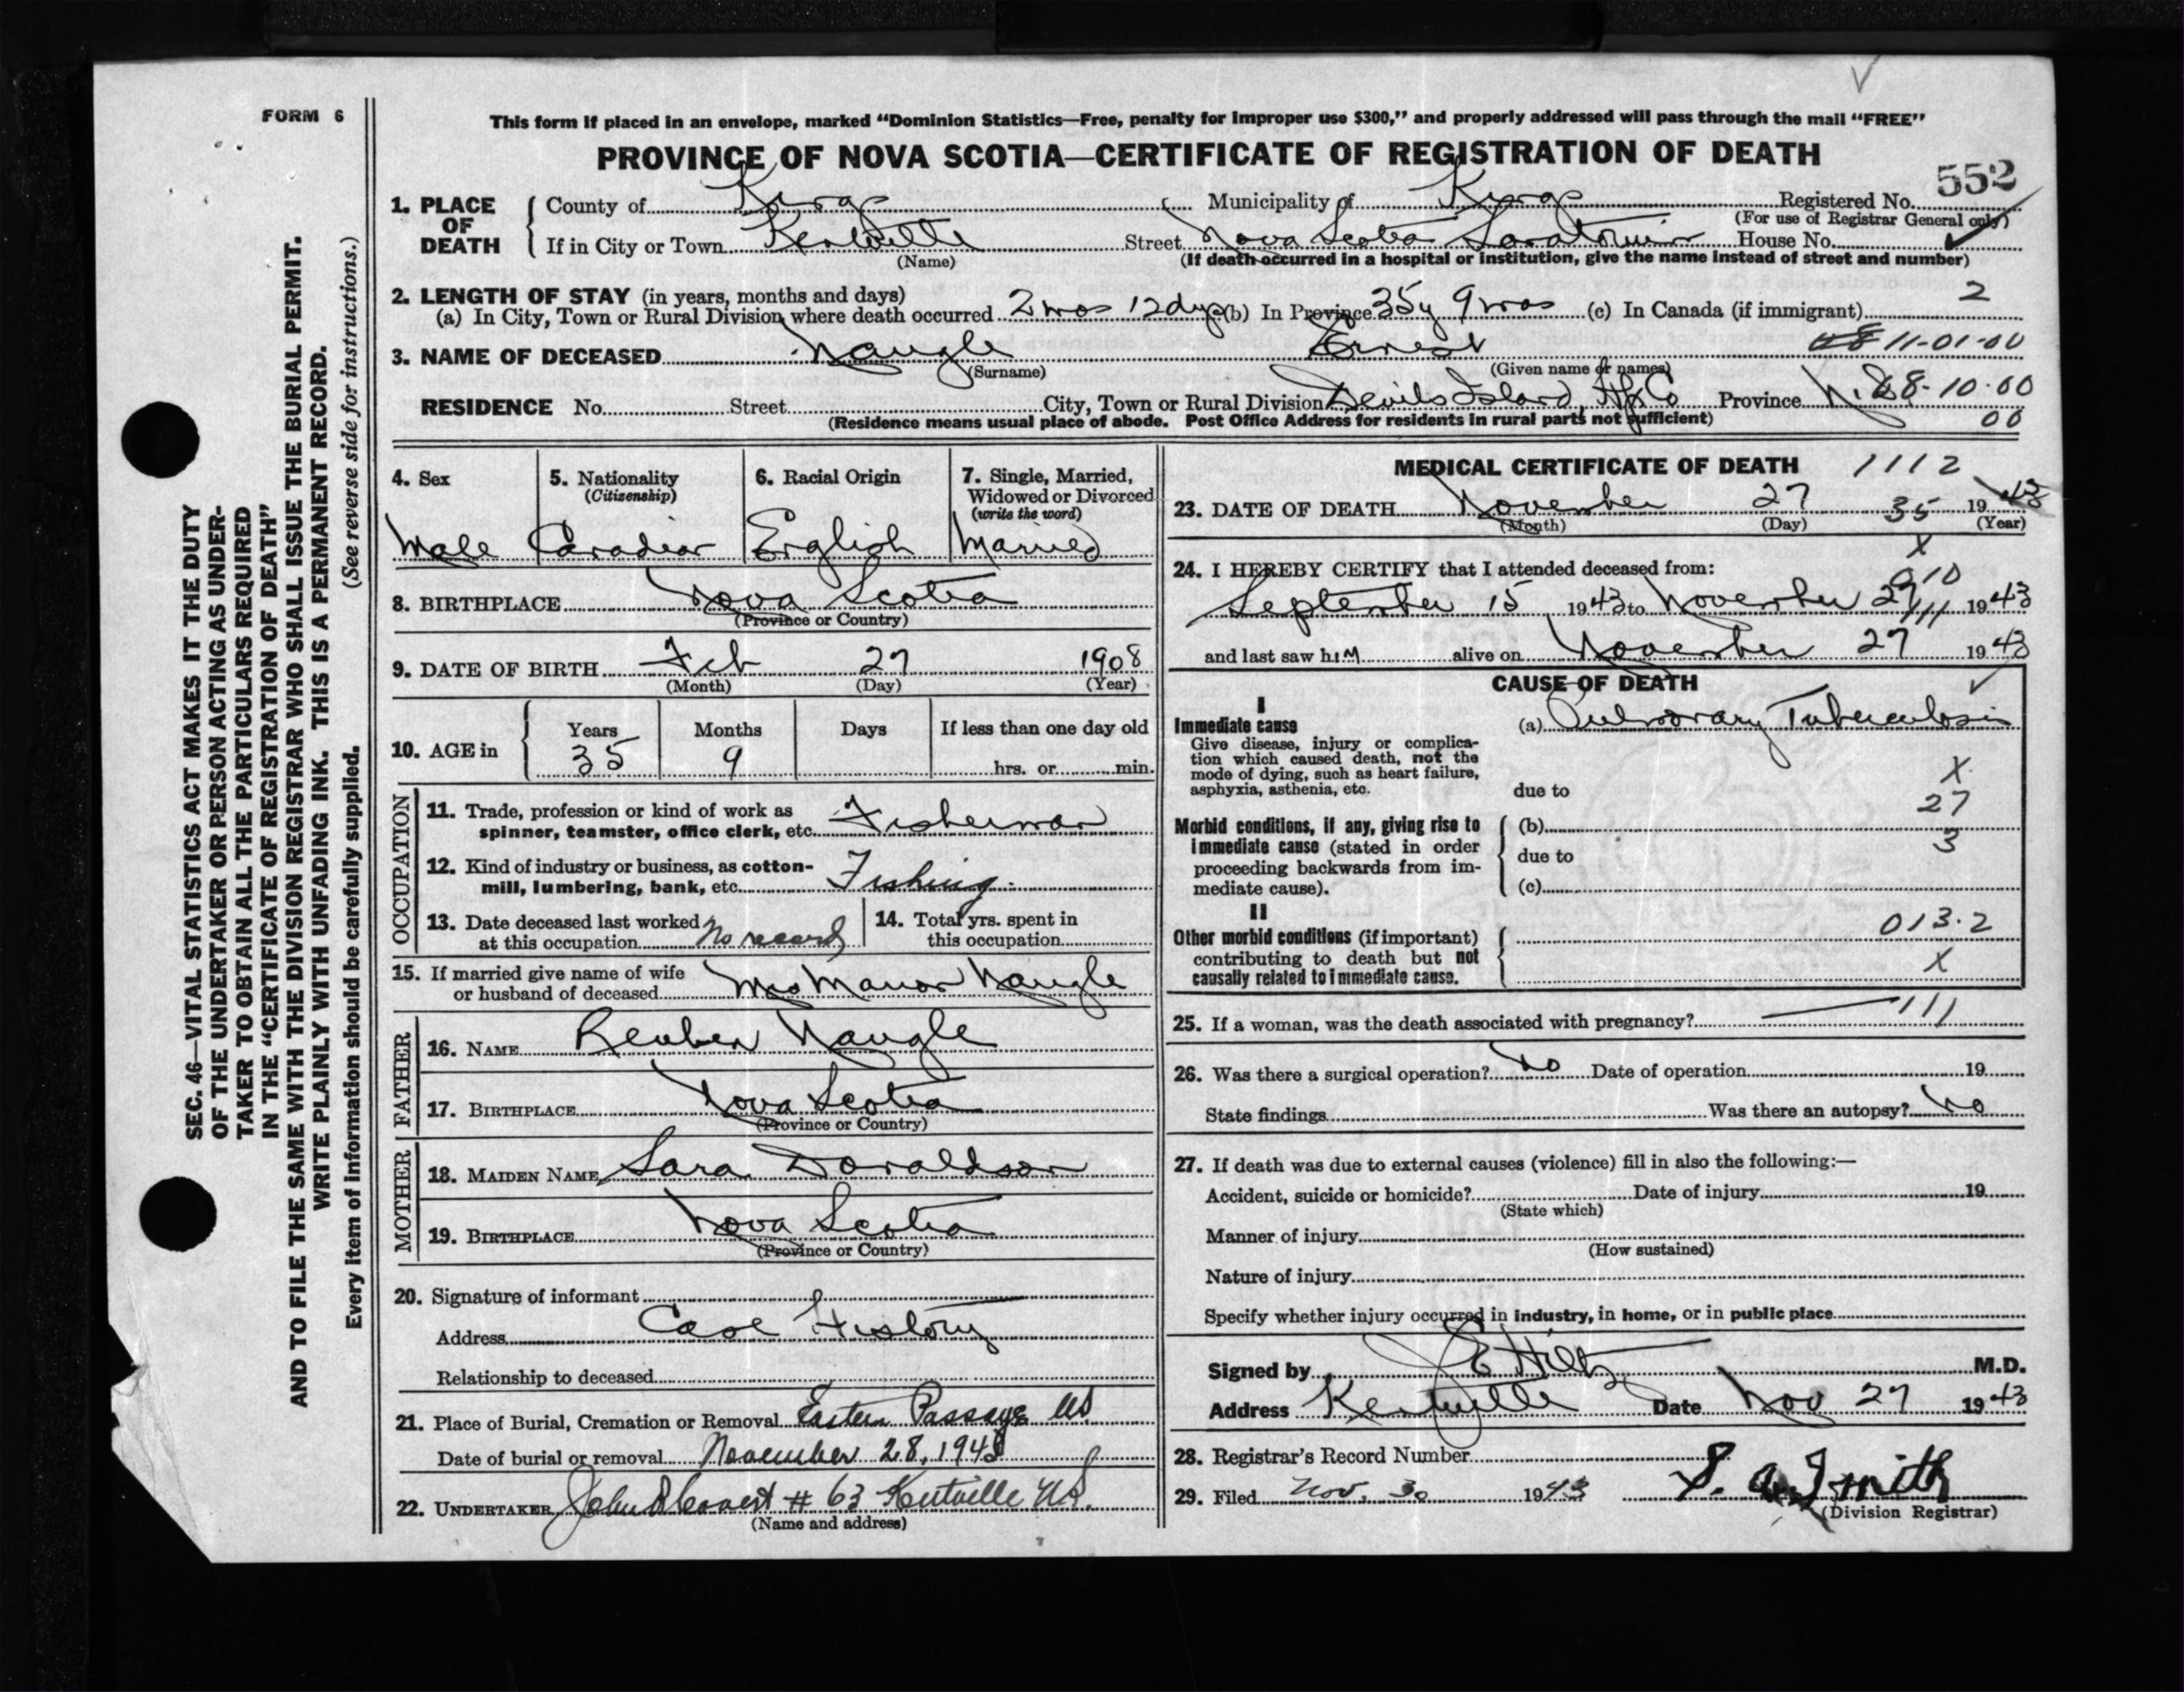 FORM 6
This form if placed in an envelope, marked “Dominion Statistics—Free, penalty for improper use $300,” and properly addressed will pass through the mail “FREE”
PROVINCE OF NOVA SCOTIA—CERTIFICATE OF REGISTRATION OF DEATH
552
1. PLACE OF DEATH
County of Kings Municipality of Kings Registered No.
(For use of Registrar General only)
If in City or Town Kentville Street Nova Scotia Sanatorium House No.
(Name) (If death occurred in a hospital or institution, give the name instead of street and number)
2. LENGTH OF STAY (in years, months and days) 2
(a) In City, Town or Rural Division where death occurred 2 mos 12 dys (b) In Province 35y 9 mos (c) In Canada (if immigrant)
3. NAME OF DECEASED Naugle Ernest 11-01-00
(Surname) (Given name or names)
RESIDENCE No. Street City, Town or Rural Division Devils Island, Hfx Co Province N.S. 8-10-00
(Residence means usual place of abode. Post Office Address for residents in rural parts not sufficient) 00
4. Sex Male
5. Nationality (Citizenship) Canadian
6. Racial Origin English
7. Single, Married, Widowed or Divorced (write the word) Married
8. BIRTHPLACE Nova Scotia
(Province or Country)
9. DATE OF BIRTH Feb 27 1908
(Month) (Day) (Year)
10. AGE in Years 35 Months 9 Days If less than one day old hrs. or min.
OCCUPATION
11. Trade, profession or kind of work as spinner, teamster, office clerk, etc. Fisherman
12. Kind of industry or business, as cotton-mill, lumbering, bank, etc. Fishing.
13. Date deceased last worked at this occupation No record
14. Total yrs. spent in this occupation
15. If married give name of wife or husband of deceased Mrs Manor Naugle
FATHER
16. NAME Reuben Naugle
17. BIRTHPLACE Nova Scotia
(Province or Country)
MOTHER
18. MAIDEN NAME Sara Donaldson
19. BIRTHPLACE Nova Scotia
(Province or Country)
20. Signature of informant
Address Case History
Relationship to deceased
21. Place of Burial, Cremation or Removal Eastern Passage NS
Date of burial or removal November 28, 1943
22. UNDERTAKER # 63 Kentville N.S.
(Name and address)
MEDICAL CERTIFICATE OF DEATH 1112
23. DATE OF DEATH November 27 35 1943
(Month) (Day) (Year)
X
24. I HEREBY CERTIFY that I attended deceased from: 010
September 15 1943 to November 27 111 1943
and last saw him alive on November 27 1943
CAUSE OF DEATH
I
Immediate cause (a) Pulmonary Tuberculosis
Give disease, injury or complication which caused death, not the mode of dying, such as heart failure, asphyxia, asthenia, etc.
due to X
27
Morbid conditions, if any, giving rise to immediate cause (stated in order proceeding backwards from immediate cause).
(b)
due to 3
(c)
II
Other morbid conditions (if important) contributing to death but not causally related to immediate cause.
013.2
X
25. If a woman, was the death associated with pregnancy? 111
26. Was there a surgical operation? No Date of operation 19
State findings Was there an autopsy? No
27. If death was due to external causes (violence) fill in also the following:—
Accident, suicide or homicide? Date of injury 19
(State which)
Manner of injury
(How sustained)
Nature of injury
Specify whether injury occurred in industry, in home, or in public place
Signed by J E Hiltz M.D.
Address Kentville Date Nov 27 1943
28. Registrar's Record Number
29. Filed Nov. 30 1943 S. A. Smith
(Division Registrar)
SEC. 46—VITAL STATISTICS ACT MAKES IT THE DUTY
OF THE UNDERTAKER OR PERSON ACTING AS UNDER-
TAKER TO OBTAIN ALL THE PARTICULARS REQUIRED
IN THE “CERTIFICATE OF REGISTRATION OF DEATH”
AND TO FILE THE SAME WITH THE DIVISION REGISTRAR WHO SHALL ISSUE THE BURIAL PERMIT.
WRITE PLAINLY WITH UNFADING INK. THIS IS A PERMANENT RECORD.
Every item of information should be carefully supplied. (See reverse side for instructions.)